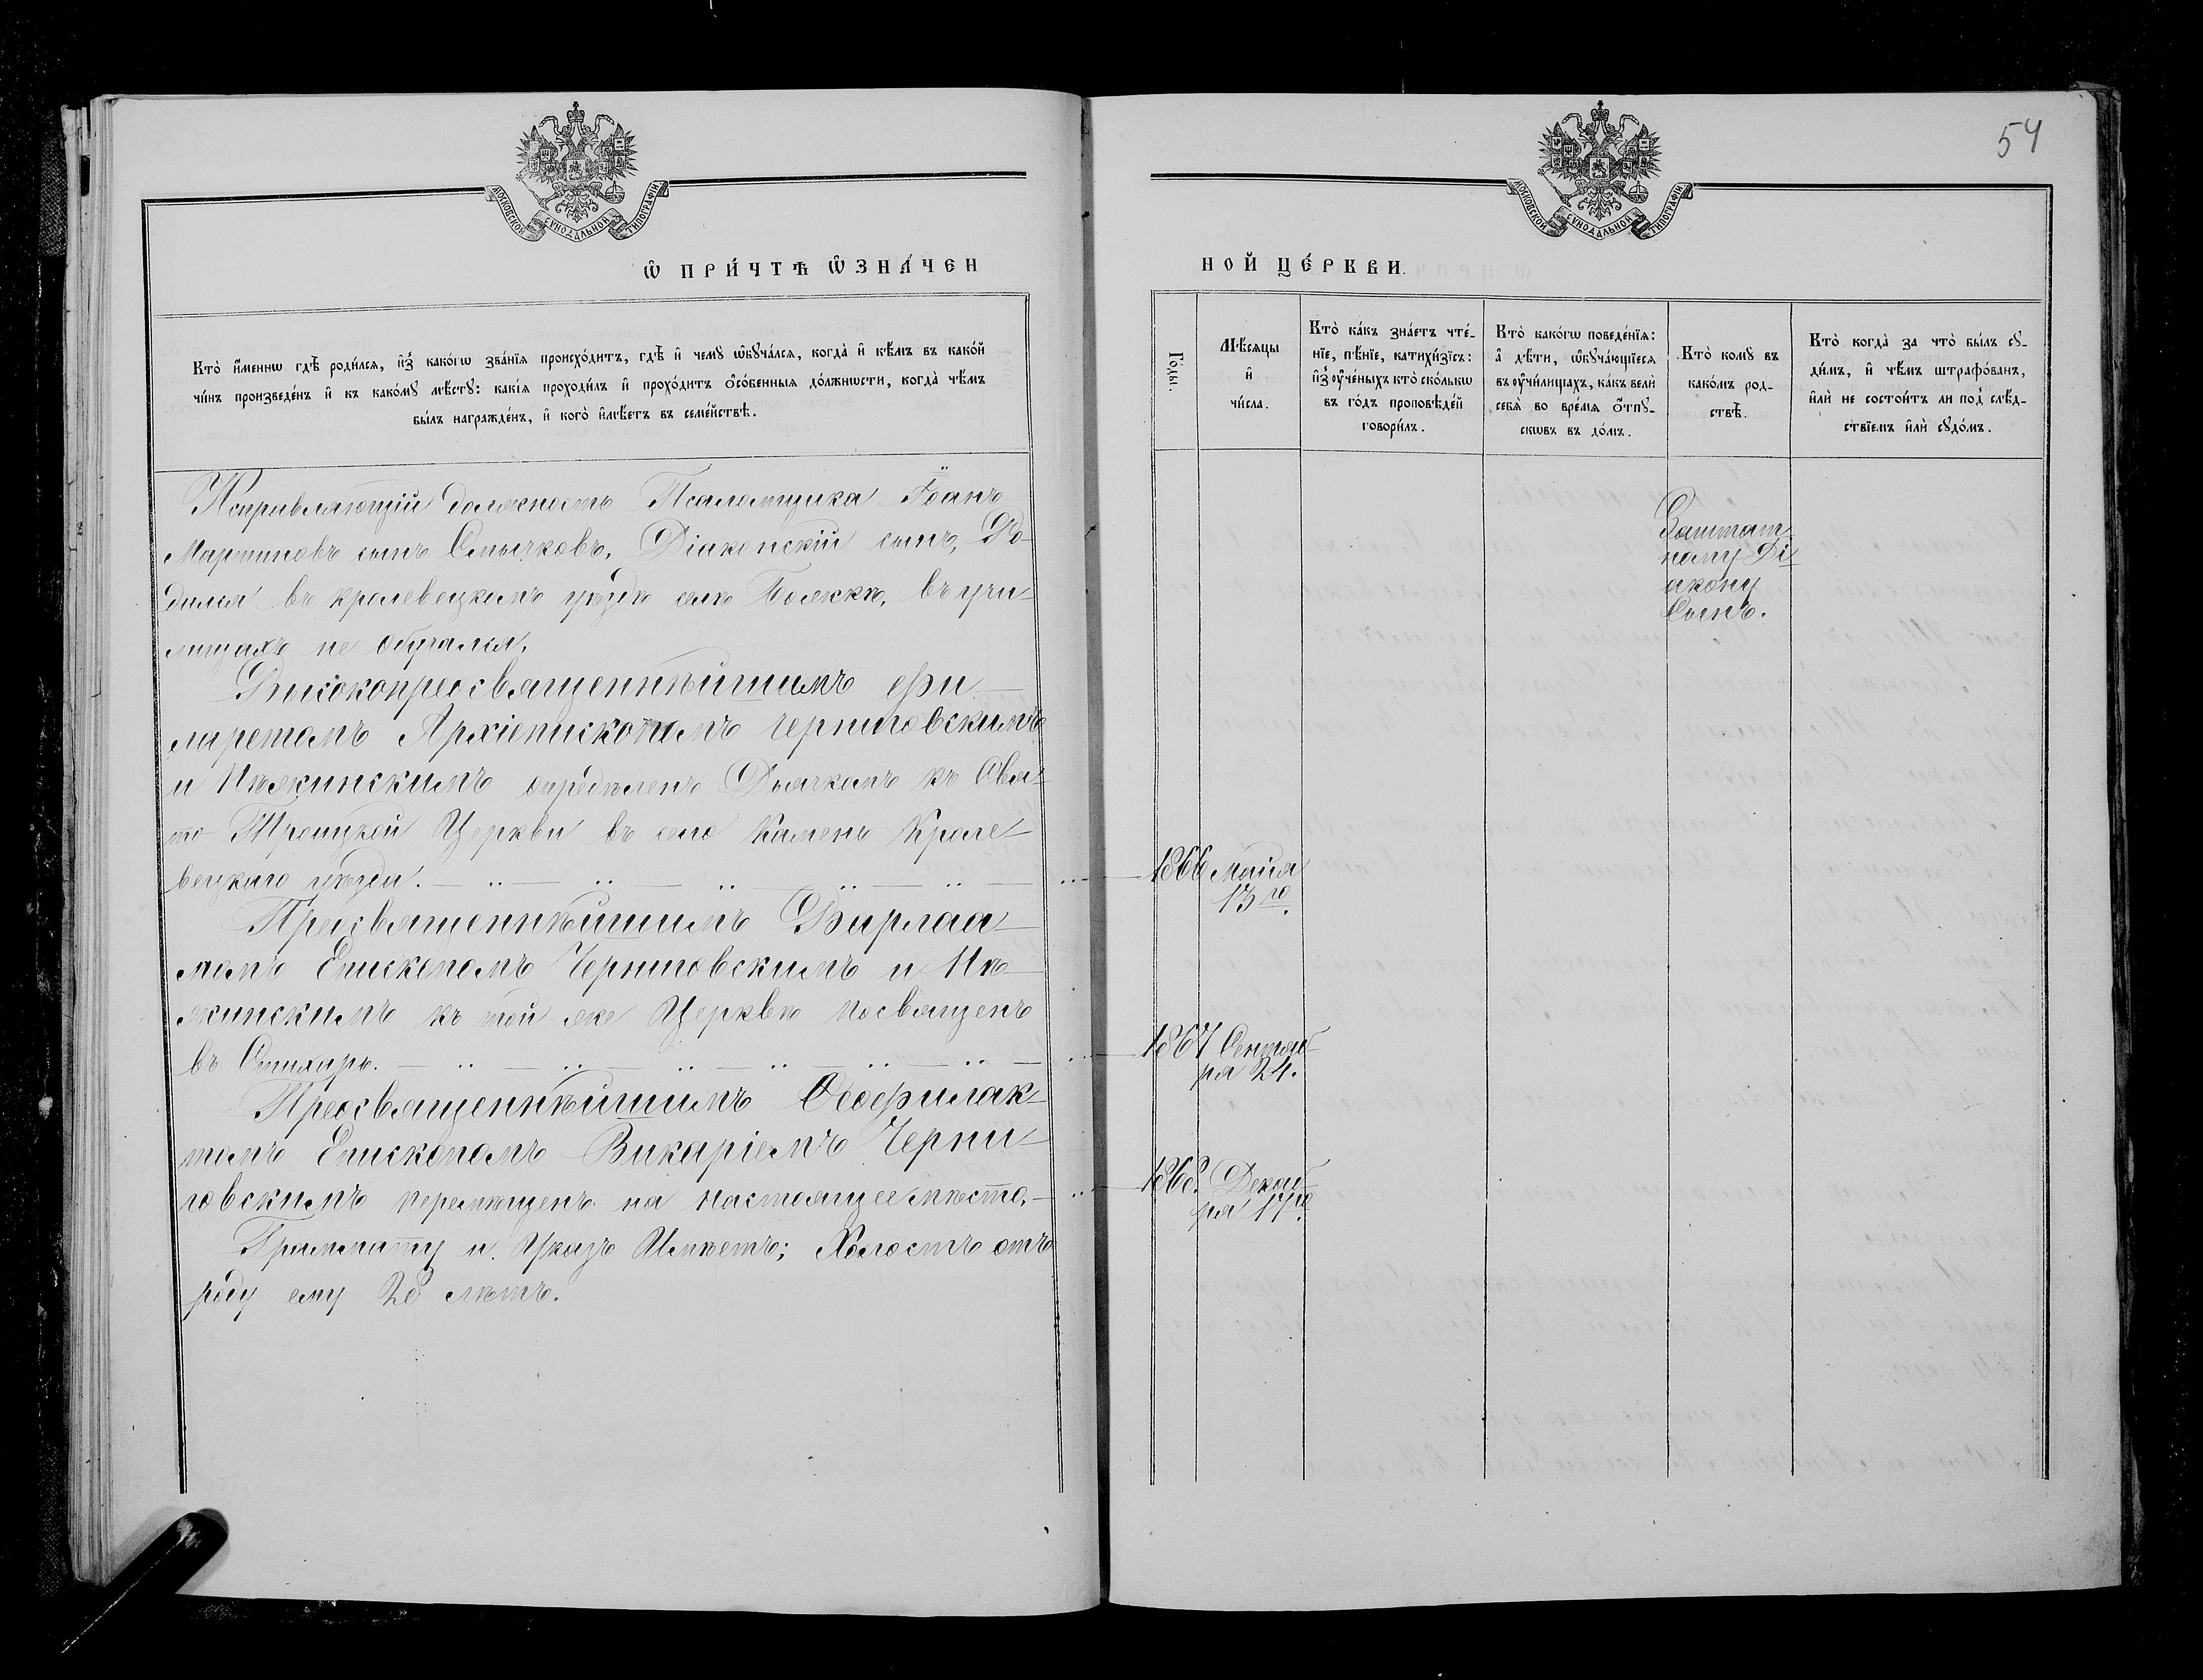 54
МОСКОВСКОЙ СѴНОДАЛЬНОЙ ТИПОГРАФІИ
МОСКОВСКОЙ СѴНОДАЛЬНОЙ ТИПОГРАФІИ
Ѡ ПРИ́ЧТѢ ѠЗНА́ЧЕН
НОЙ ЦЕ́РКВИ.
Кто̀ и҆́меннѡ гдѣ̀ роди́лся, и҆з̾ како́гѡ зва́нїя происхо́дитъ, гдѣ̀ и҆ чемꙋ̀ ѡ҆бꙋча́лся, когда̀ и҆ кѣ́мъ въ како́й
чи́нъ произведе́нъ и҆ къ како́мꙋ мѣ́стꙋ: какі́я проходи́лъ и҆ прохо́дитъ ѻ҆со́бенныя до́лжности, когда̀ чѣ́мъ
бы́лъ награжде́нъ, и҆ кого̀ и҆мѣ́етъ въ семе́йствѣ.
Го́ды.
Мѣ́сяцы
и҆
чи́сла.
Кто̀ ка́къ зна́етъ чте́-
нїе, пѣ́нїе, катихи́зїсъ:
и҆з̾ ᲂу҆че́ныхъ кто̀ ско́лькѡ
въ го́дъ проповѣ́дей
говори́лъ.
Кто̀ како́гѡ поведе́нїя:
а҆ дѣ́ти, ѡ҆бꙋча́ющїеся
въ ᲂу҆чи́лищахъ, ка́къ велѝ
себѧ̀ во вре́мя ѻ҆́тпꙋ-
скѡвъ въ до́мъ.
Кто̀ комꙋ̀ въ
како́мъ род-
ствѣ̀.
Кто̀ когда̀ за что̀ бы́лъ сꙋ-
ди́мъ, и҆ чѣ́мъ штрафо́ванъ,
и҆лѝ не состои́тъ ли под̾ слѣ́д-
ствїемъ и҆лѝ сꙋдо́мъ.
Исправляющій должность Псаломщика Іоанъ
Мартиновъ сынъ Смычковъ, Діаконскій сынъ, Ро-
дился въ кролевецкомъ уѣздѣ селѣ Божкѣ, въ учи-
лищахъ не обучался.
Высокопреосвященнѣйшимъ Фи-
ларетомъ Архіепископомъ Черниговскимъ
и Нѣжинскимъ опредѣленъ Дьячкомъ къ Свя-
то-Троицкой Церкви въ село Камень Кроле-
вецкаго уѣзда.
1866 Маiя
13го.
Преосвященнѣйшимъ Варлаа-
момъ Епископомъ Черниговскимъ и Нѣ-
жинскимъ къ той же Церквѣ посвященъ
въ Стихарь.
1867 Сентяб-
ря 24.
Преосвященнѣйшимъ Ѳеофилак-
томъ Епископомъ Викаріемъ Черни-
говскимъ перемѣщенъ на настоящее мѣсто.
1868. Декаб-
ря 17го.
Граммату и Указъ Имѣетъ; Холостъ отъ
роду ему 28 лѣтъ.
Заштат-
ному Ді-
акону
Сынъ.